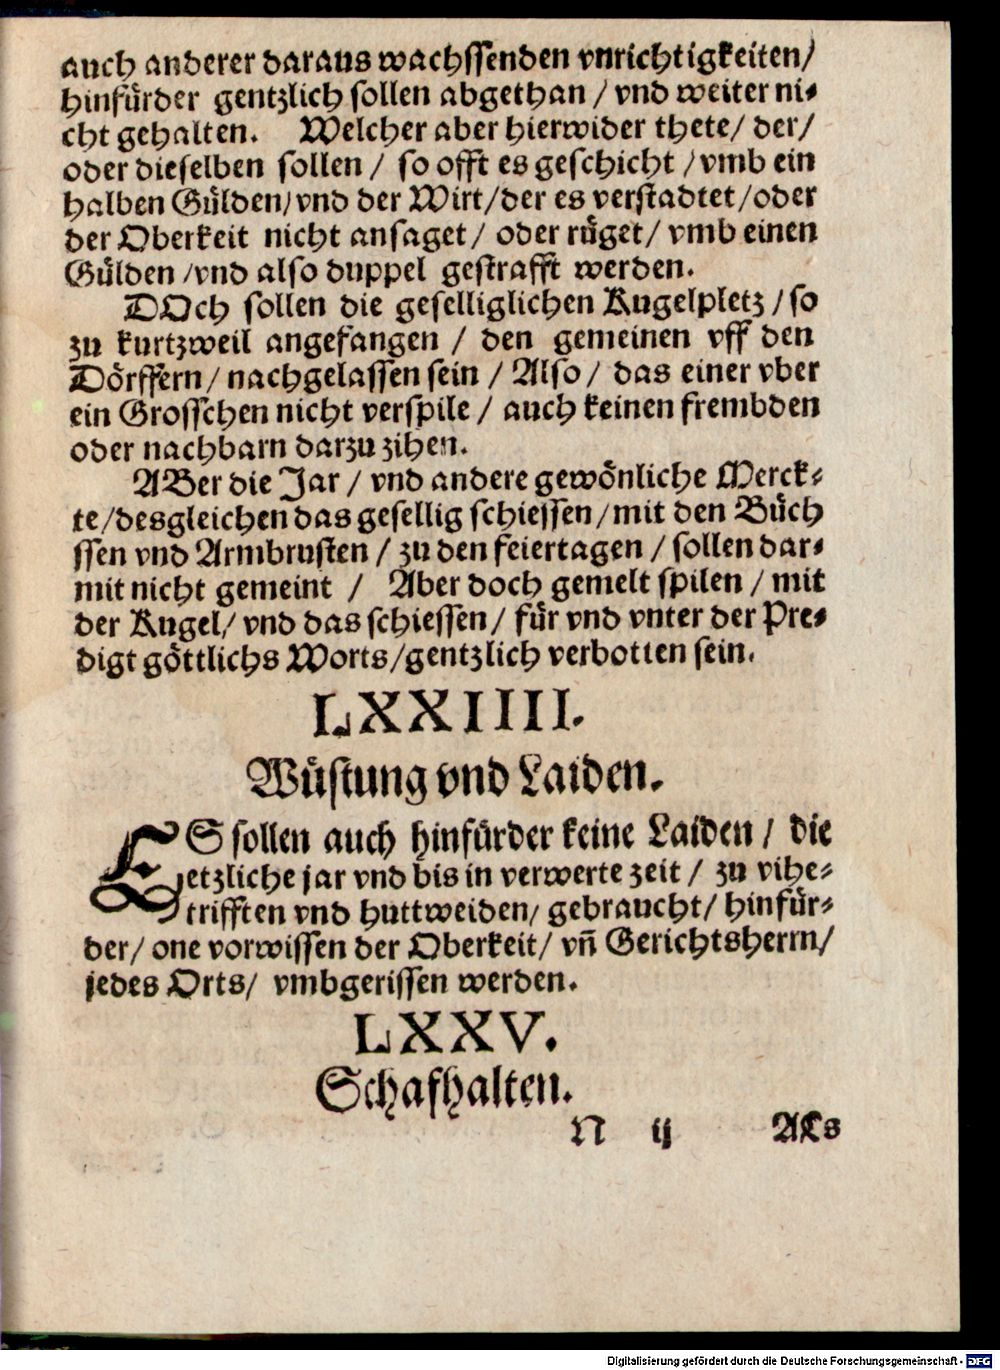 auch anderer daraus wachssenden vnrichtigkeiten/
hinfürder gentzlich sollen abgethan / vnd weiter ni-
cht gehalten. Welcher aber hierwider thete/ der/
oder dieselben sollen / so offt es geschicht / vmb ein
halben Gülden/ vnd der Wirt/ der es verstadtet/ oder
der Oberkeit nicht ansaget/ oder rüget/ vmb einen
Gülden /vnd also duppel gestrafft werden.
DOch sollen die geselliglichen Kugelpletz / so
zu kurtzweil angefangen / den gemeinen vff den
Dörffern/ nachgelassen sein / Also/ das einer vber
ein Grosschen nicht verspile / auch keinen frembden
oder nachbarn darzu zihen.
ABer die Jar / vnd andere gewönliche Merck-
te/desgleichen das gesellig schiessen/mit den Büch
ssen vnd Armbrusten / zu den feiertagen / sollen dar-
mit nicht gemeint / Aber doch gemelt spilen / mit
der Kugel/ vnd das schiessen/ für vnd vnter der Pre-
digt göttlichs Worts/gentzlich verbotten sein.
LXXIIII.
Wüstung vnd Laiden.
ES sollen auch hinfürder keine Laiden / die
etzliche jar vnd bis in verwerte zeit / zu vihe-
trifften vnd huttweiden/ gebraucht/ hinfür-
der/ one vorwissen der Oberkeit/ vñ Gerichtsherrn/
jedes Orts/ vmbgerissen werden.
LXXV.
Schafhalten.
N ij ALs
Digitalisierung gefördert durch die Deutsche Forschungsgemeinschaft - DFG